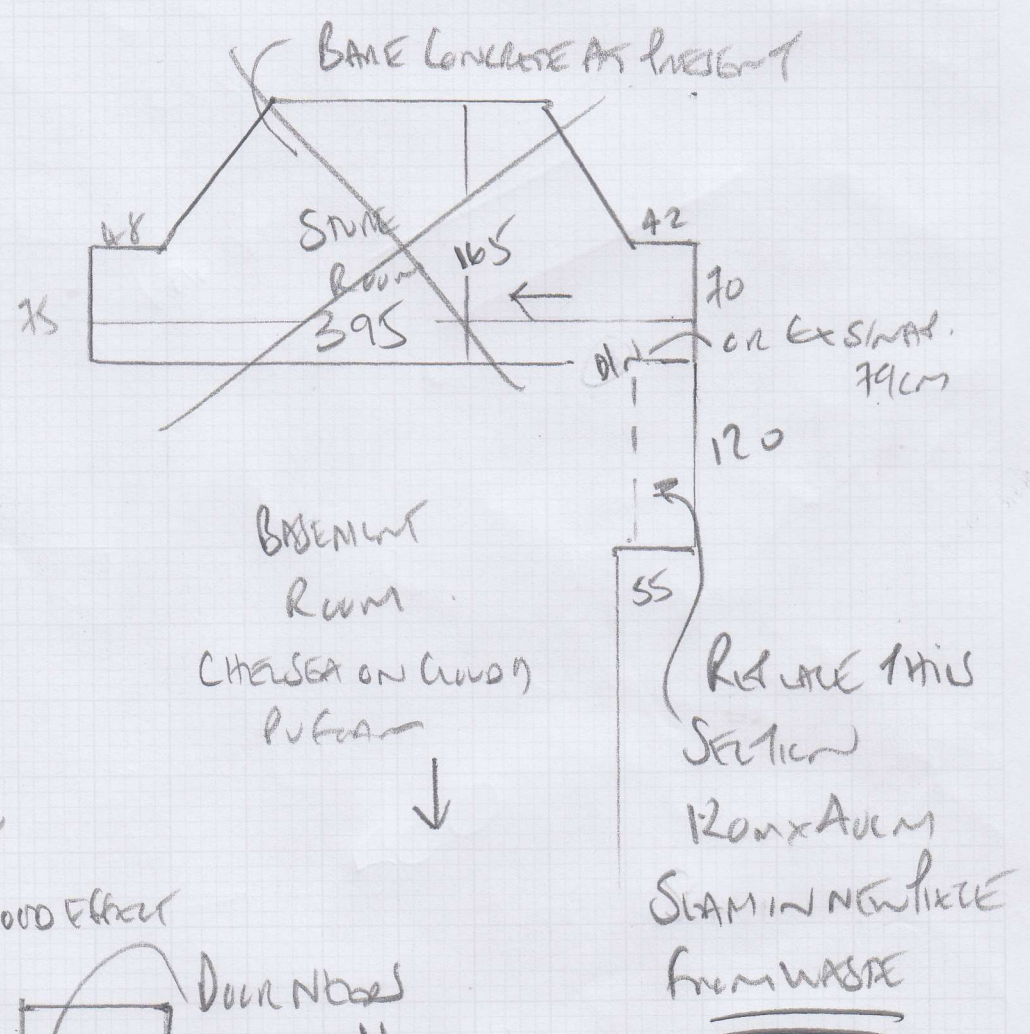 BARE CONCRETE AT PRESENT
48
42
STORE
ROOM
165
70
75
395
OR EX
79CM
120
BASEMENT
ROOM
55
CHELSEA ON CLOUD 9
REPLACE THIS
SECTION
1.20M X
SEAM IN NEW PIECE
FROM WASTE
OOD EFFECT
DOOR NEEDS